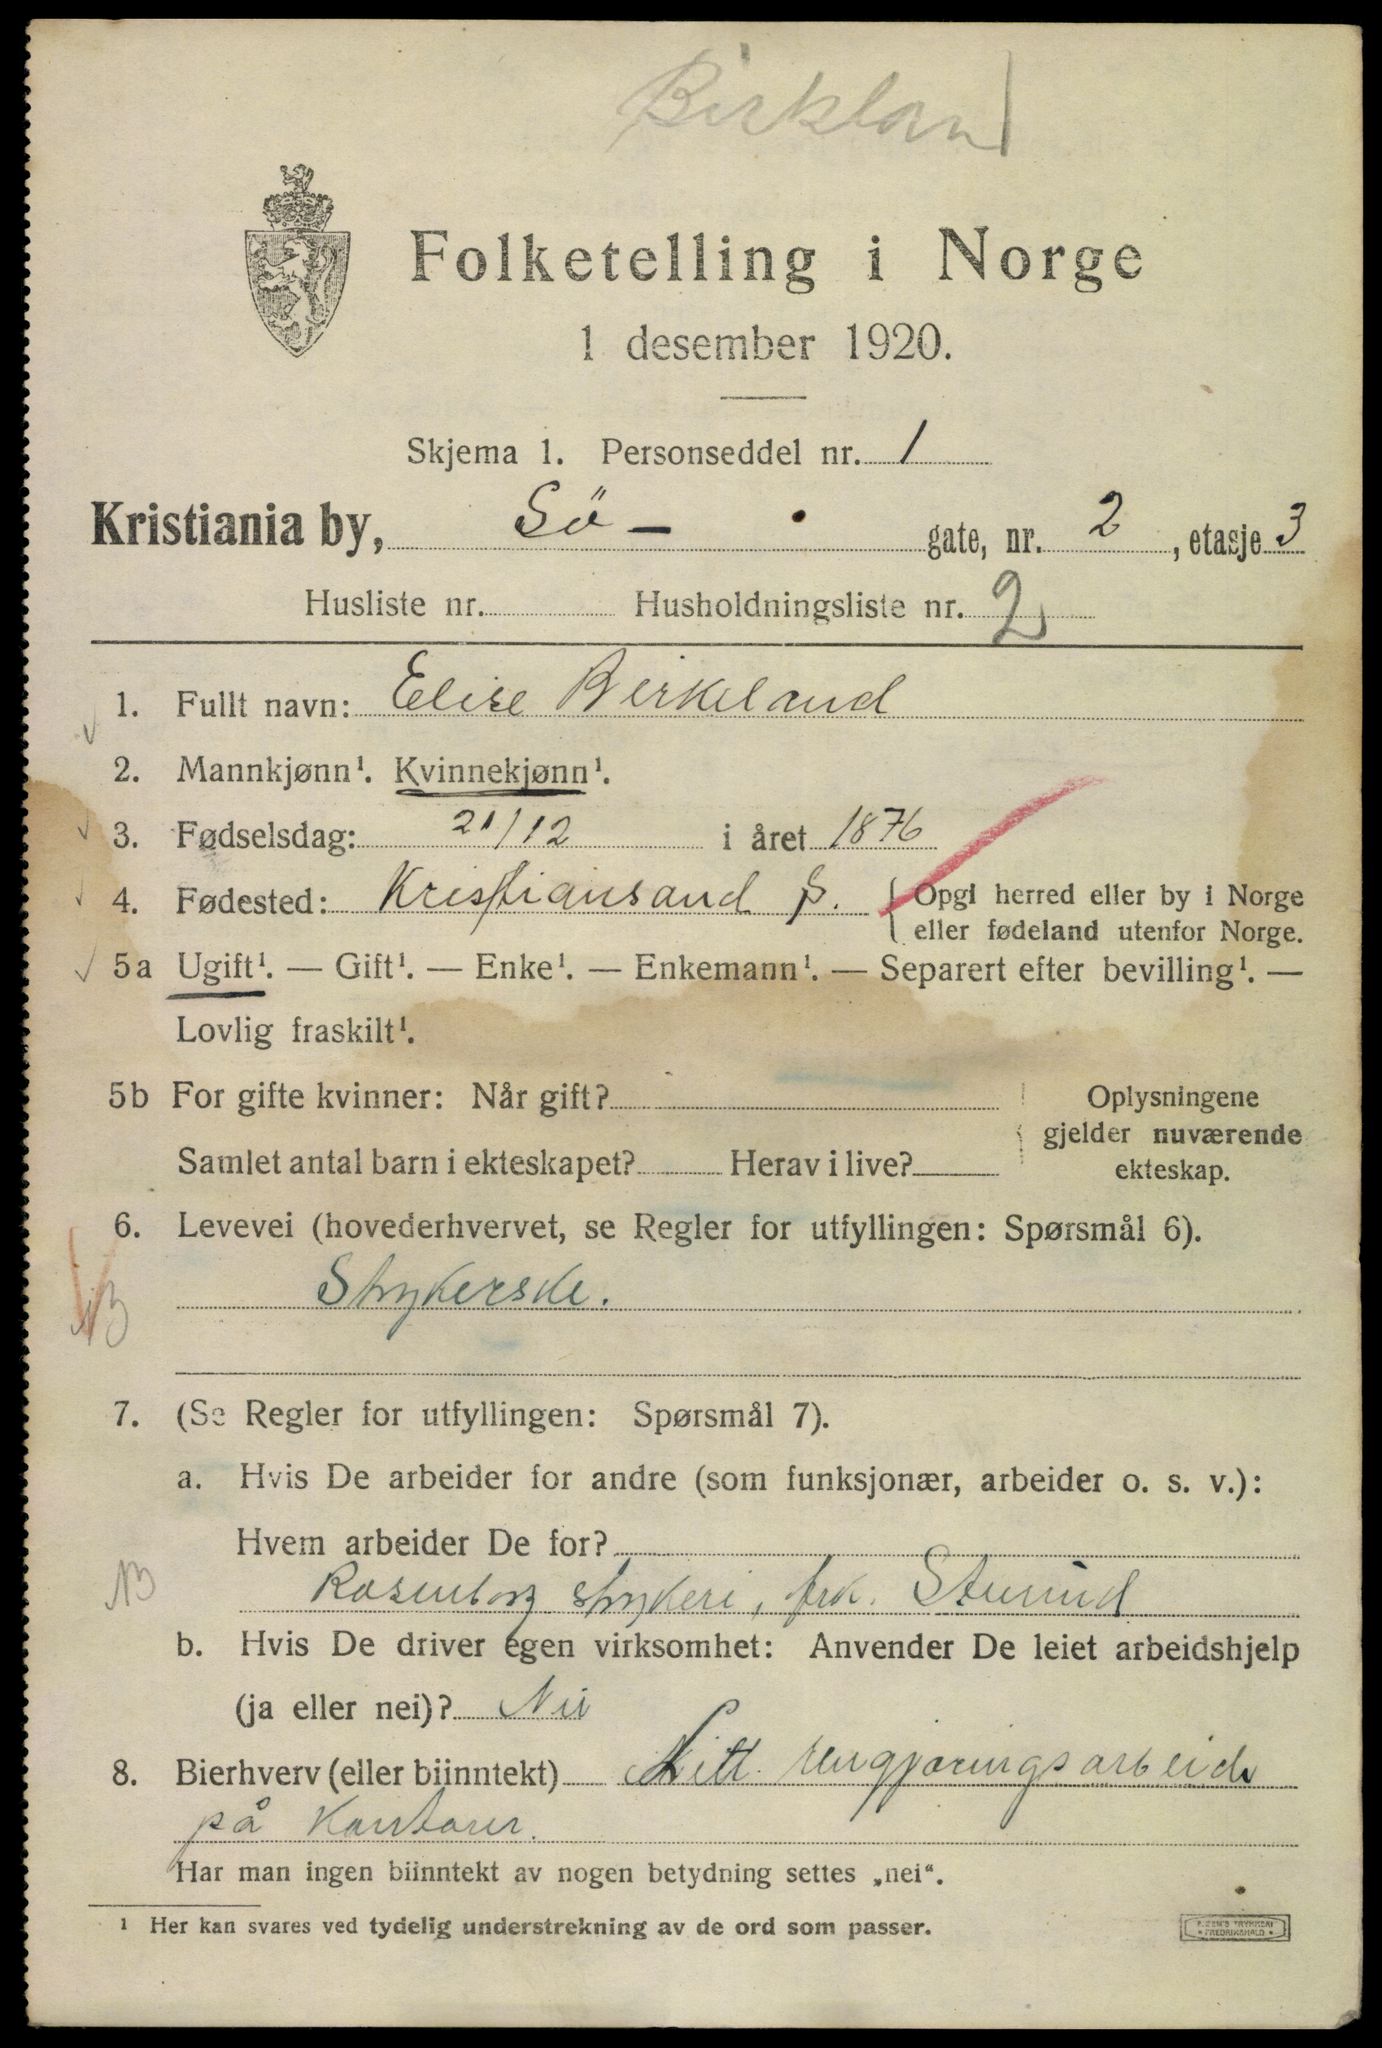 Birkland
Folketelling i Norge
1 desember 1920.
Skjema 1. Personseddel nr. 1
Kristiania by, Sö- gate, nr. 2, etasje 3
Husliste nr. Husholdningsliste nr. 2
1. Fullt navn: Elise Birkeland
2. Mannkjønn¹. Kvinnekjønn¹.
3. Fødselsdag: 21/12 i året 1876
4. Fødested: Kristiansand S. { Opgi herred eller by i Norge
eller fødeland utenfor Norge.
5a Ugift¹. — Gift¹. — Enke¹. — Enkemann¹. — Separert efter bevilling¹. —
Lovlig fraskilt¹.
5b For gifte kvinner: Når gift? Oplysningene
gjelder nuværende
Samlet antal barn i ekteskapet? Herav i live? ekteskap.
6. Levevei (hovederhvervet, se Regler for utfyllingen: Spørsmål 6).
Strykerske.
NB
7. (Se Regler for utfyllingen: Spørsmål 7).
a. Hvis De arbeider for andre (som funksjonær, arbeider o. s. v.):
Hvem arbeider De for?
NB Rosenborg strykeri, frk.
b. Hvis De driver egen virksomhet: Anvender De leiet arbeidshjelp
(ja eller nei)? Nei
8. Bierhverv (eller biinntekt) Litt rengjøringsarbeide
på Kontorer.
Har man ingen biinntekt av nogen betydning settes „nei“.
¹ Her kan svares ved tydelig understrekning av de ord som passer.
TRYKKERI
FREDRIKSHALD